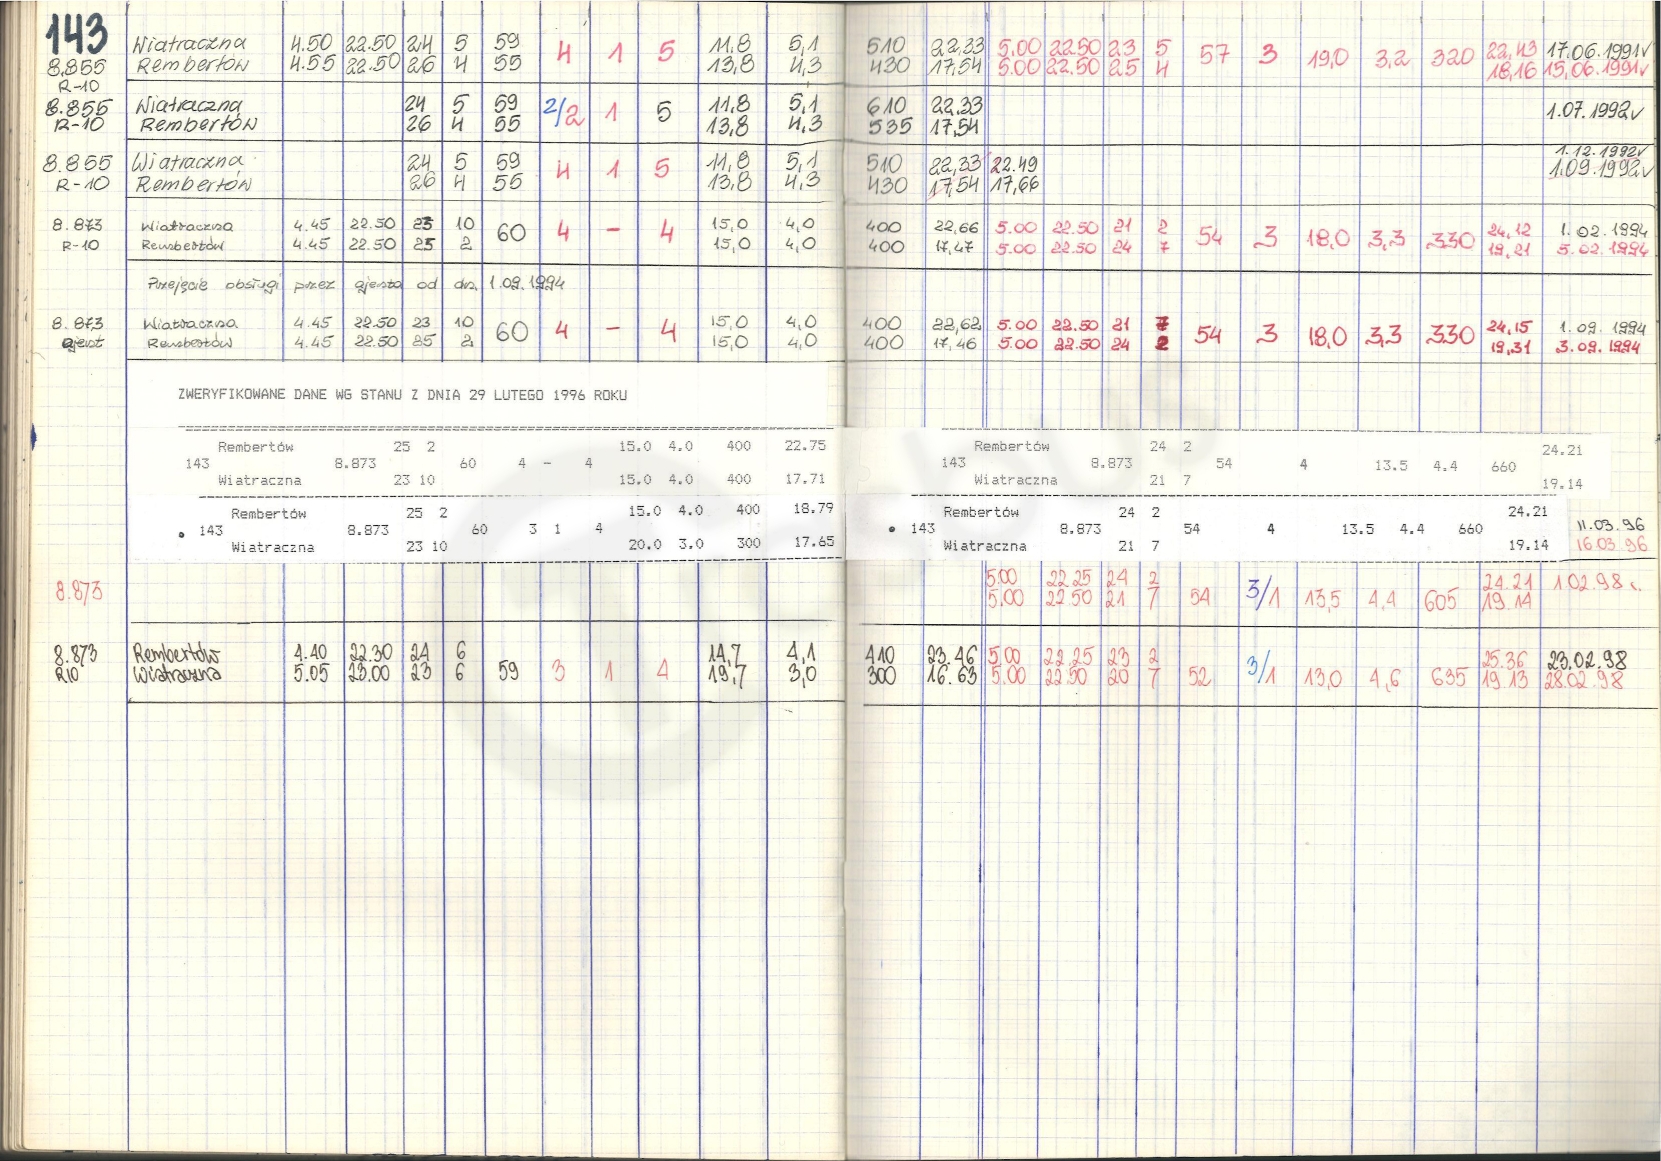 143 Wiatraczna 4.50 22.50 24 5 59 4 1 5 11,8 5,1 510 22,33 5.00 22.50 23 5 57 3 19,0 3,2 320 22,43 17.06.1991v
8.855 Rembertów 4.55 22.50 26 4 55 13,8 4,3 430 17,54 5.00 22.50 25 4 18,16 15,06.1991v
R-10
8.855 Wiatraczna 24 5 59 2/2 1 5 11,8 5,1 610 22,33 1.07.1992v
R-10 Rembertów 26 4 55 13,8 4,3 535 17,54
1.12.1992v
8.855 Wiatraczna 24 5 59 4 1 5 11,8 5,1 510 22,33 22.49 1.09.1992v
R-10 Rembertów 26 4 55 13,8 4,3 430 17,54 17,66
8.873 Wiatraczna 4.45 22.50 23 10 60 4 - 4 15,0 4,0 400 22,66 5.00 22.50 21 2 54 3 18,0 3,3 330 24,12 1.02.1994
R-10 Rembertów 4.45 22.50 25 2 15,0 4,0 400 17,47 5.00 22.50 24 7 19,21 5.02.1994
Przejęcie obsługi przez ajenta od dn. 1.09.1994
8.873 Wiatraczna 4.45 22.50 23 10 60 4 - 4 15,0 4,0 400 22,62 5.00 22.50 21 7 54 3 18,0 3,3 330 24,15 1.09.1994
ajent Rembertów 4.45 22.50 25 2 15,0 4,0 400 17,46 5.00 22.50 24 2 19,31 3.09.1994
ZWERYFIKOWANE DANE WG STANU Z DNIA 29 LUTEGO 1996 ROKU
Rembertów 25 2 15.0 4.0 400 22.75 Rembertów 24 2 24.21
143 8.873 60 4 - 4 143 8.873 54 4 13.5 4.4 660
Wiatraczna 23 10 15.0 4.0 400 17.71 Wiatraczna 21 7 19.14
Rembertów 25 2 15.0 4.0 400 18.79 Rembertów 24 2 24.21
143 8.873 60 3 1 4 143 8.873 54 4 13.5 4.4 660 11.03.96
Wiatraczna 23 10 20.0 3.0 300 17.65 Wiatraczna 21 7 19.14 16.03.96
8.873 5.00 22.25 24 2 54 3/1 13,5 4,4 605 24.21 1.02.98r.
5.00 22.50 21 7 19.14
8.873 Rembertów 4.40 22.30 24 6 59 3 1 4 14,7 4,1 410 23.46 5.00 22.25 23 2 52 3/1 13,0 4,6 635 25.36 23.02.98
R10 Wiatraczna 5.05 23.00 23 6 19,7 3,0 300 16.63 5.00 22.50 20 7 19.13 28.02.98